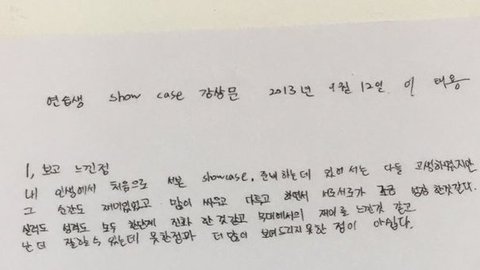 연습생 show case 감상문 2013년 9월 12일 이 태용
1, 보고 느낀점
내 인생에서 처음으로 서본 showcase, 준비하는데 있어서는 다들 고생하였지만
그 순간도 재미있었고 많이 싸우고 다투고 하면서 서로가 조금 성장 한것같다.
실력도 성격도 모두 한단계 진화 한 것같고 무대에서의 재미를 느낀것 같고
난 더 잘할수 있는데 못한점과 더 많이 보여드리지 못한 점이 아쉽다.